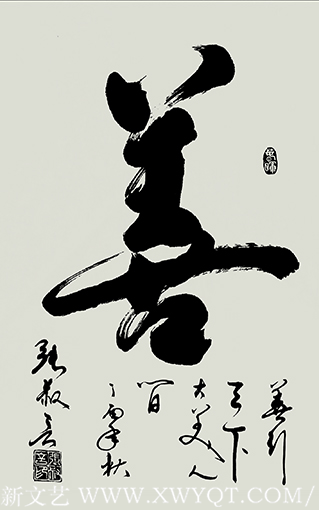 善
善行
天下
大美人
间
丁酉年秋
新文艺 / WWW.XWYQT.COM/